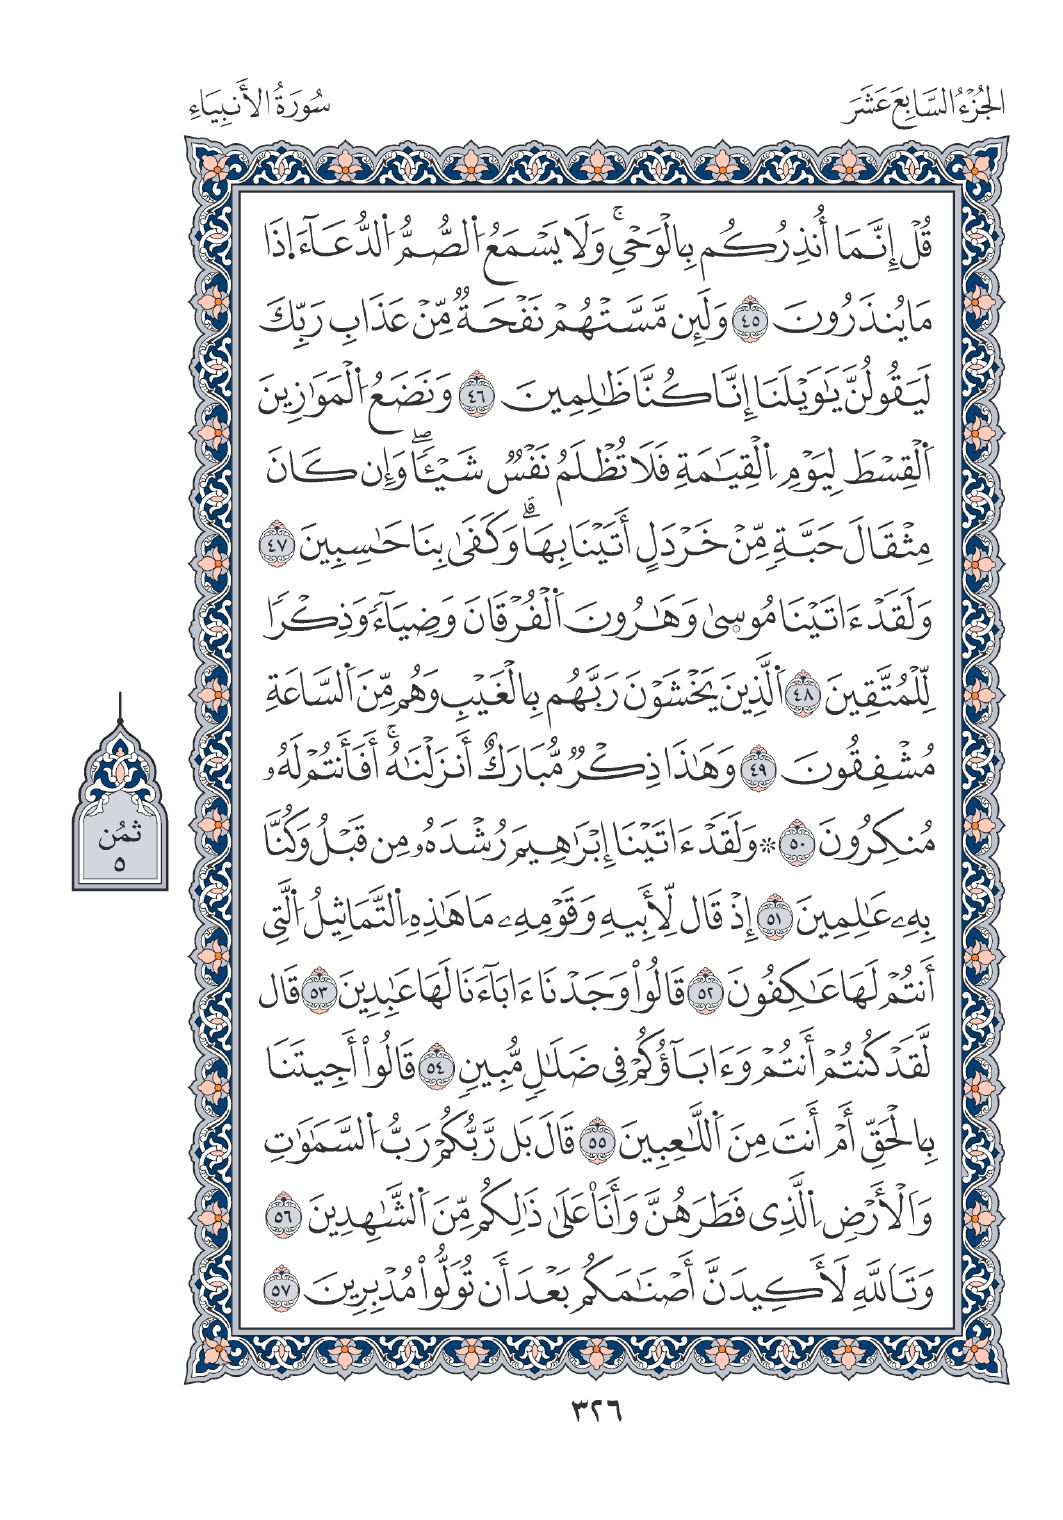 الجُزْءُ السَّابِعَ عَشَرَ
سُورَةُ الأَنبِيَاءِ
قُلْ إِنَّمَا أُنذِرُكُم بِالْوَحْيِۚ وَلَا يَسْمَعُ اُ۬لصُّمُّ اُ۬لدُّعَآءَ ا۪ذَا
مَا يُنذَرُونَ ٤٥ وَلَئِن مَّسَّتْهُمْ نَفْحَةٌ مِّنْ عَذَابِ رَبِّكَ
لَيَقُولُنَّ يَٰوَيْلَنَا إِنَّا كُنَّا ظَٰلِمِينَ ٤٦ وَنَضَعُ اُ۬لْمَوَٰزِينَ
اَ۬لْقِسْطَ لِيَوْمِ اِ۬لْقِيَٰمَةِ فَلَا تُظْلَمُ نَفْسٌ شَيْـًٔاۖ وَإِن كَانَ
مِثْقَالَ حَبَّةٍ مِّنْ خَرْدَلٍ أَتَيْنَا بِهَاۗ وَكَفَىٰ بِنَا حَٰسِبِينَ ٤٧
وَلَقَدْ ءَاتَيْنَا مُوسىٰ وَهَٰرُونَ اَ۬لْفُرْقَانَ وَضِيَآءً وَذِكْرًا
لِّلْمُتَّقِينَ ٤٨ اَ۬لَّذِينَ يَخْشَوْنَ رَبَّهُم بِالْغَيْبِ وَهُم مِّنَ اَ۬لسَّاعَةِ
مُشْفِقُونَ ٤٩ وَهَٰذَا ذِكْرٌ مُّبَارَكٌ أَنزَلْنَٰهُۚ أَفَأَنتُمْ لَهُۥ
مُنكِرُونَ ٥٠ ۞ وَلَقَدْ ءَاتَيْنَا إِبْرَٰهِيمَ رُشْدَهُۥ مِن قَبْلُ وَكُنَّا
بِهِۦ عَٰلِمِينَ ٥١ إِذْ قَال لِّأَبِيهِ وَقَوْمِهِۦ مَا هَٰذِهِ اِ۬لتَّمَاثِيلُ اُ۬لَّتِي
أَنتُمْ لَهَا عَٰكِفُونَ ٥٢ قَالُواْ وَجَدْنَا ءَابَآءَنَا لَهَا عَٰبِدِينَ ٥٣ قَال
لَّقَدْ كُنتُمْ أَنتُمْ وَءَابَآؤُكُمْ فِي ضَلَٰلٍ مُّبِينٍ ٥٤ قَالُواْ أَجِيتَنَا
بِالْحَقِّ أَمْ أَنتَ مِنَ اَ۬للَّٰعِبِينَ ٥٥ قَالَ بَل رَّبُّكُمْ رَبُّ اُ۬لسَّمَٰوَٰتِ
وَالْأَرْضِ اِ۬لَّذِي فَطَرَهُنَّ وَأَنَا۠ عَلَىٰ ذَٰلِكُم مِّنَ اَ۬لشَّٰهِدِينَ ٥٦
وَتَاللَّهِ لَأَكِيدَنَّ أَصْنَٰمَكُم بَعْدَ أَن تُوَلُّواْ مُدْبِرِينَ ٥٧
ثُمُن
٥
٣٢٦